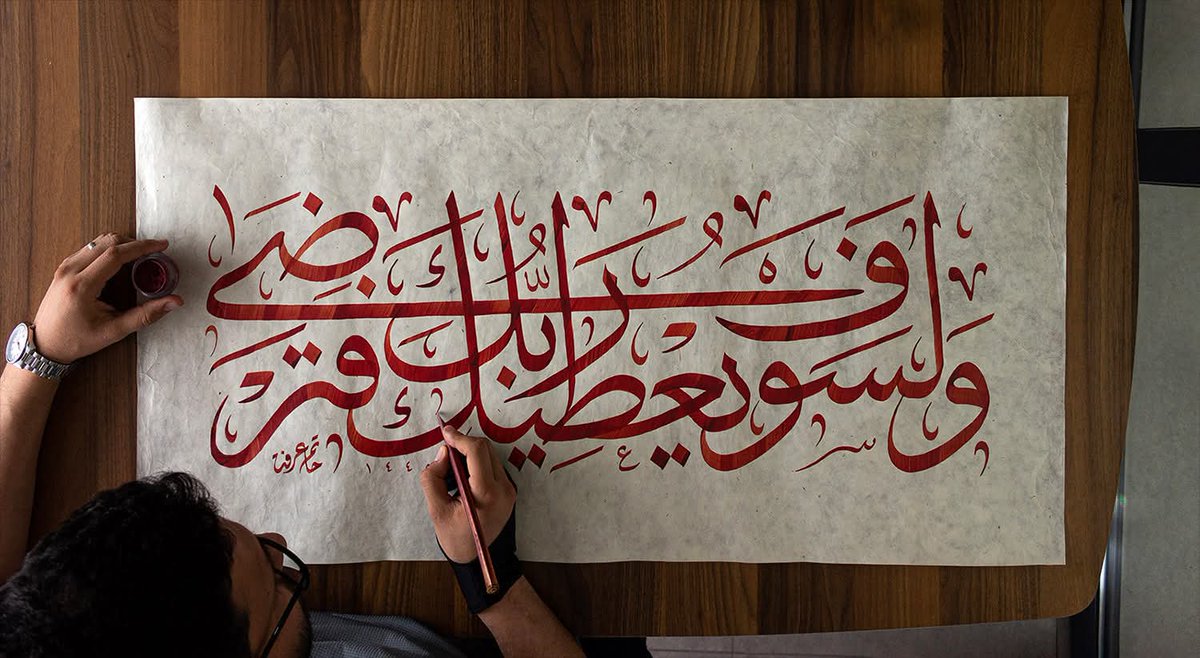 وَلَسَوْفَ يُعْطِيكَ رَبُّكَ فَتَرْضَىٰ
حاتم عرفة